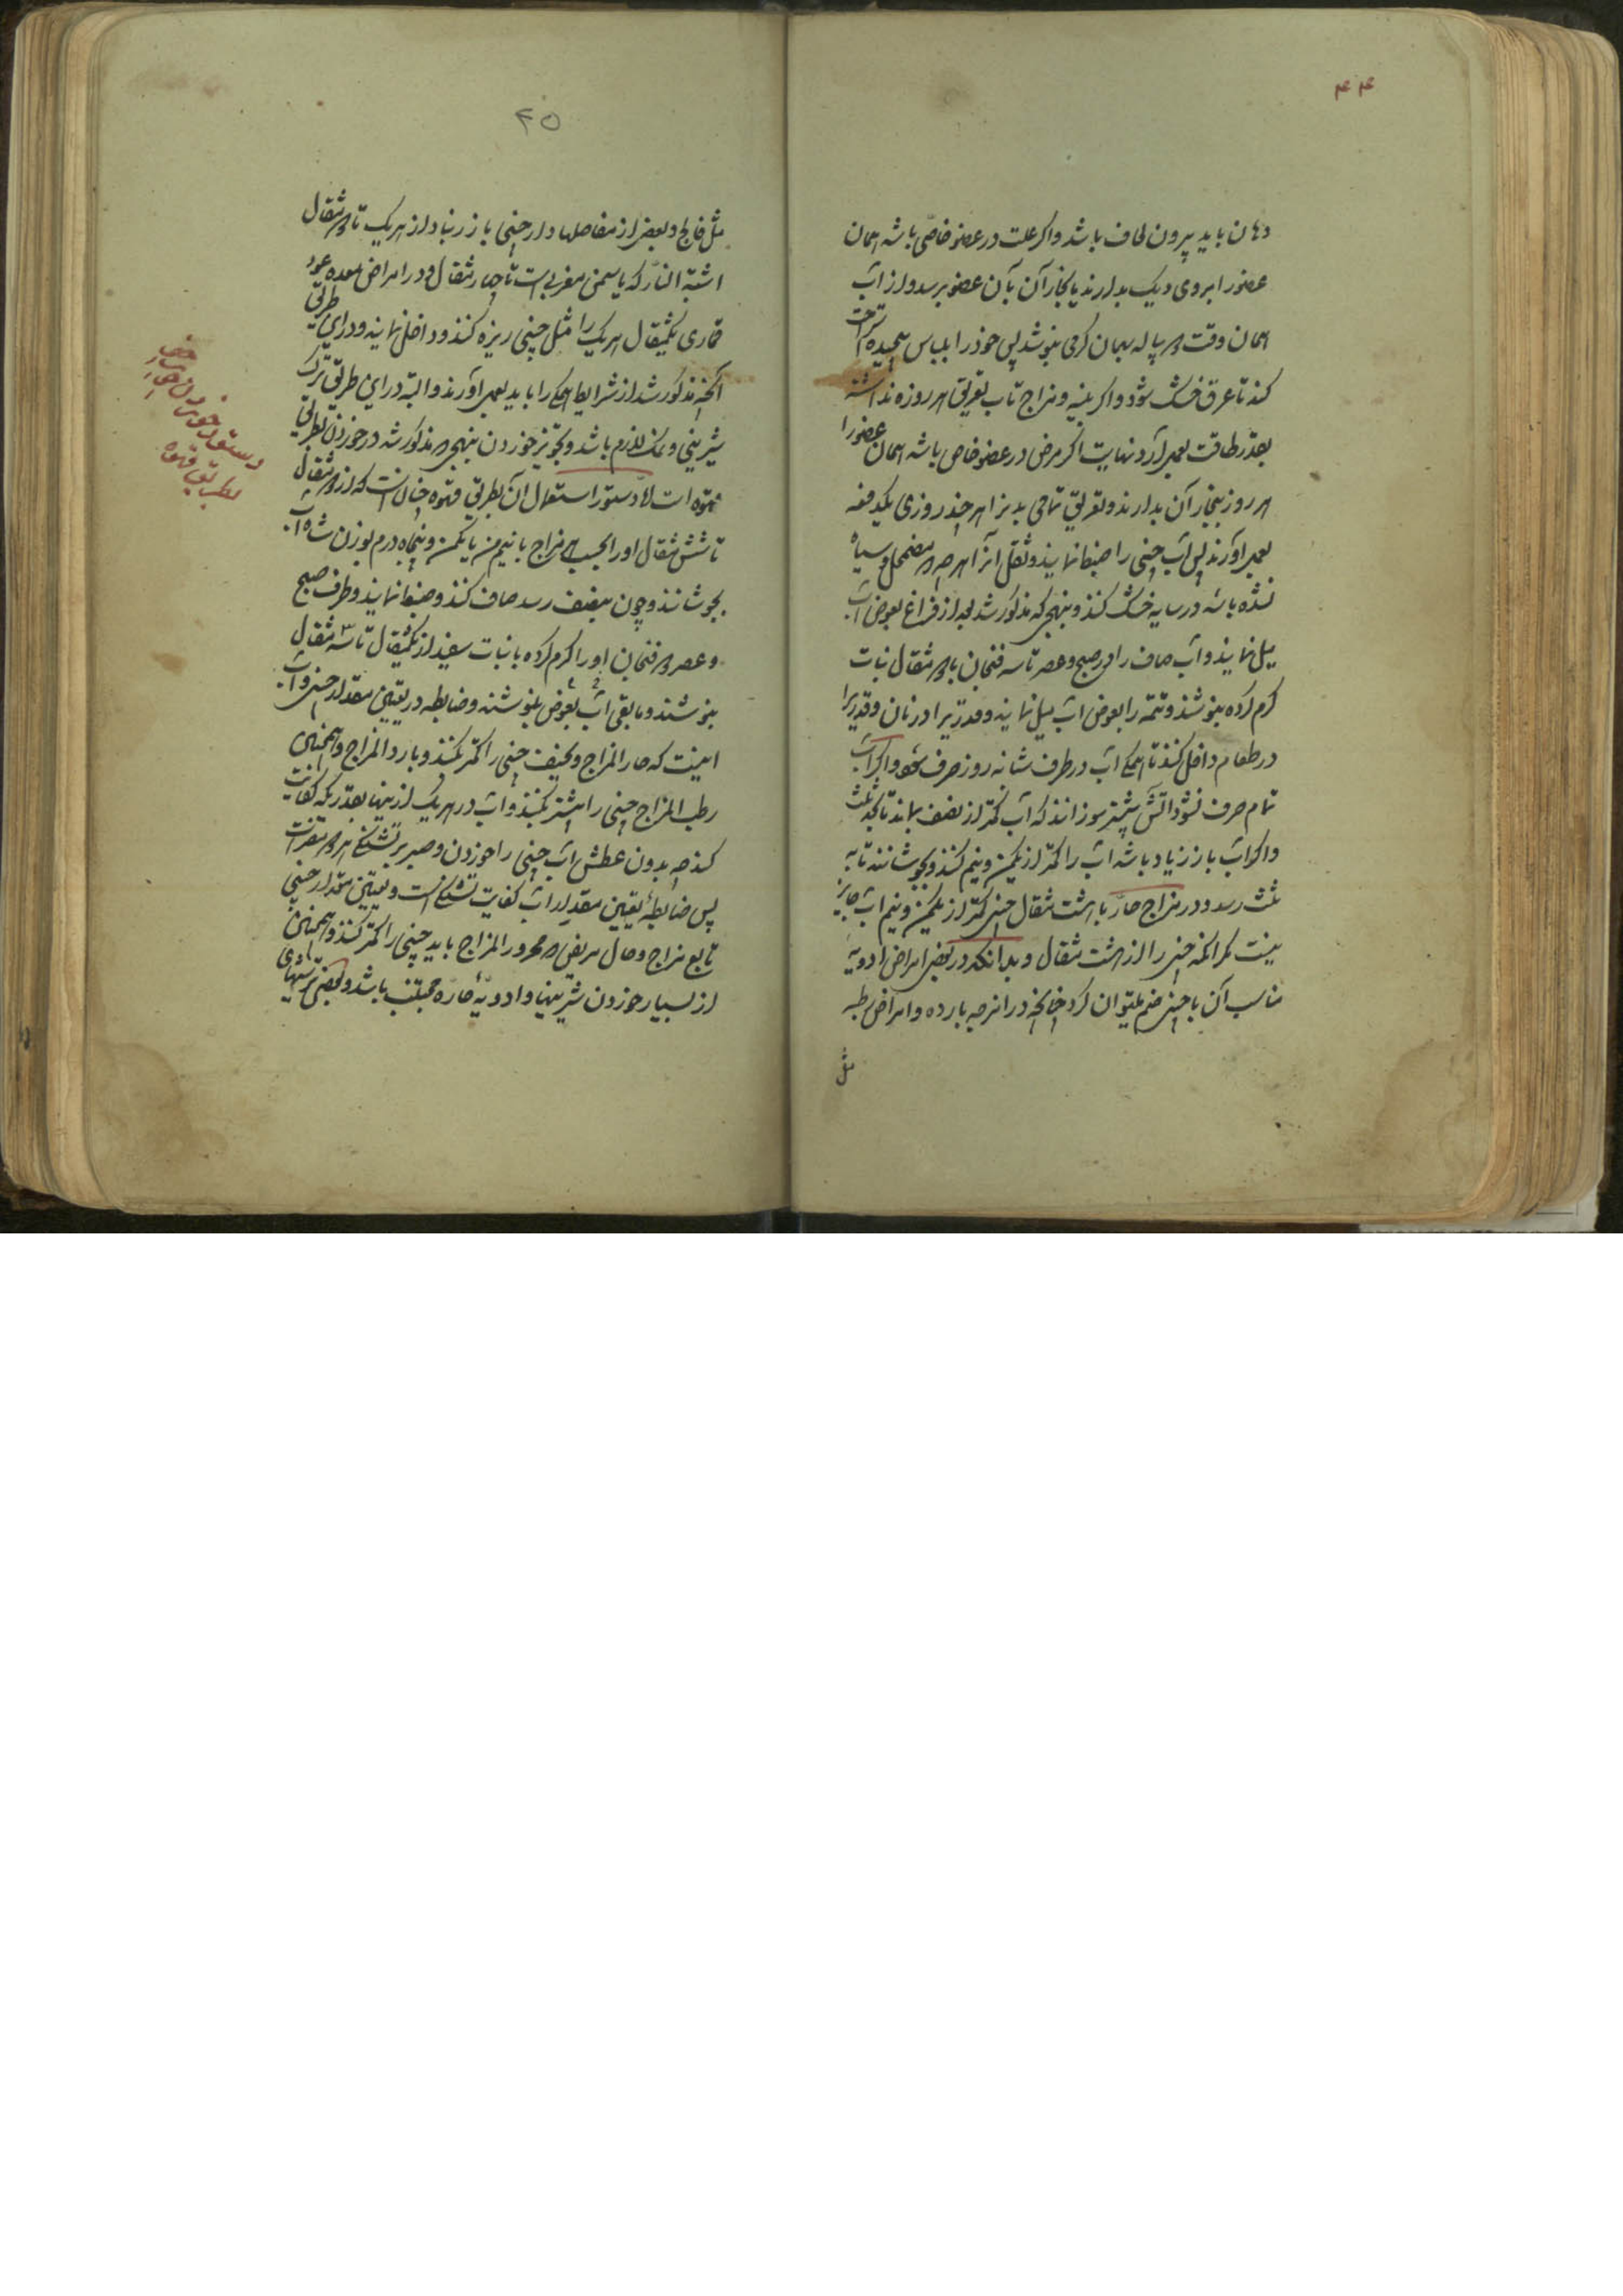 ۴۴
دهان باید بیرون لحاف باشد و اکر علت در عضو خاصی باشد همان
عضو را بروی دیک بدارند یا بخار آن بآن عضو برسد و از آب
همان وقت دو پیاله بهمان کرمی بنوشد پس خود را بلباس پیچیده استراحت
کند تا عرق خشک شود و اکر بنیه و مزاج تاب تعریق هر روزه نداشته
بقدر طاقت بعمل آرد نهایت اکر مرض در عضو خاص باشد همان عضو را
هر روز ببخار آن بدارند و تعریق تمامی بدن را هر چند روزی یکدفعه
بعمل آورند پس آب چینی را ضبط نمایند و ثقل آنرا هر چه مضمحل و سیاه
نشده باشد در سایه خشک کنند و بنهجی که مذکور شد بعد از فراغ بعوض آب
میل نمایند و آب صاف را در صبح و عصر تا سه فنجان با دو مثقال نبات
کرم کرده بنوشند و تتمه را بعوض آب میل نمایند و قدریرا در نان و قدریرا
در طعام داخل کنند تا همکی آب در ظرف شبانه روز صرف شود و اکر آب
تمام صرف نشود آتش بیشتر بسوزانند که آب کمتر از نصف بماند تا بحد ثلث
و اکر آب باز زیاد باشد آب را کمتر از یکمن و نیم کنند و بجوشانند تا به
ثلث رسد و در مزاج حار با هشت مثقال چینی کمتر از یکمن و نیم آب جایز
نیست مکر آنکه چینی را از هشت مثقال و بدانکه در بعضی امراض ادویه
مناسب آن با چینی ضم میتوان کرد چنانچه در امزجه بارده و امراض رطبه
مثل
۴۵
مثل فالج و بعضی از مفاصلها دارچینی با زرنباد از هریک تا دو مثقال
اشبة النار که یاسمین مغربی است تا چهار مثقال و در امراض معده عود
قماری یکمثقال هر یک را مثل چینی ریزه کنند و داخل نمایند و در این طریق
آنچه مذکور شد از شرایط همکی را باید بعمل آورند و البته در این طریق ترک
شیرینی و نمک لازم باشد و تجویز خوردن بنهجی که مذکور شد در خوردن بطریق
قهوه است امّا دستور استعمال آن بطریق قهوه چنان است که از دو مثقال
تا شش مثقال او را بحسب مزاج با نیم من یا یکمن و پنجاه درم بوزن شاه آب
بجوشانند و چون بنصف رسد صاف کنند و ضبط نمایند و طرف صبح
و عصر دو فنجان او را کرم کرده با نبات سفید از یکمثقال تا سه مثقال
بنوشند و مابقی آب بعوض بنوشند و ضابطه در تعیین مقدار چینی و آب
اینست که حار المزاج و نحیف چینی را کمتر بکنند و بارد المزاج و همچنین
رطب المزاج چینی را بیشتر بکنند و آب در هریک از اینها بقدریکه کفایت
کند چه بدون عطش آب چینی را خوردن و صبر بر تشنکی هر دو مضر است
پس ضابطهٔ تعیین مقدار آب کفایت تشنکی است و تعیین مقدار چینی
تابع مزاج و حال مریض که محرور المزاج باید چینی را کمتر کنند و همچنین
از بسیار خوردن شیرینها و ادویهٔ حاره مجتنب باشد و بعضی ترشیهای
دستور خوردن چوب چینی
بطریق قهوه